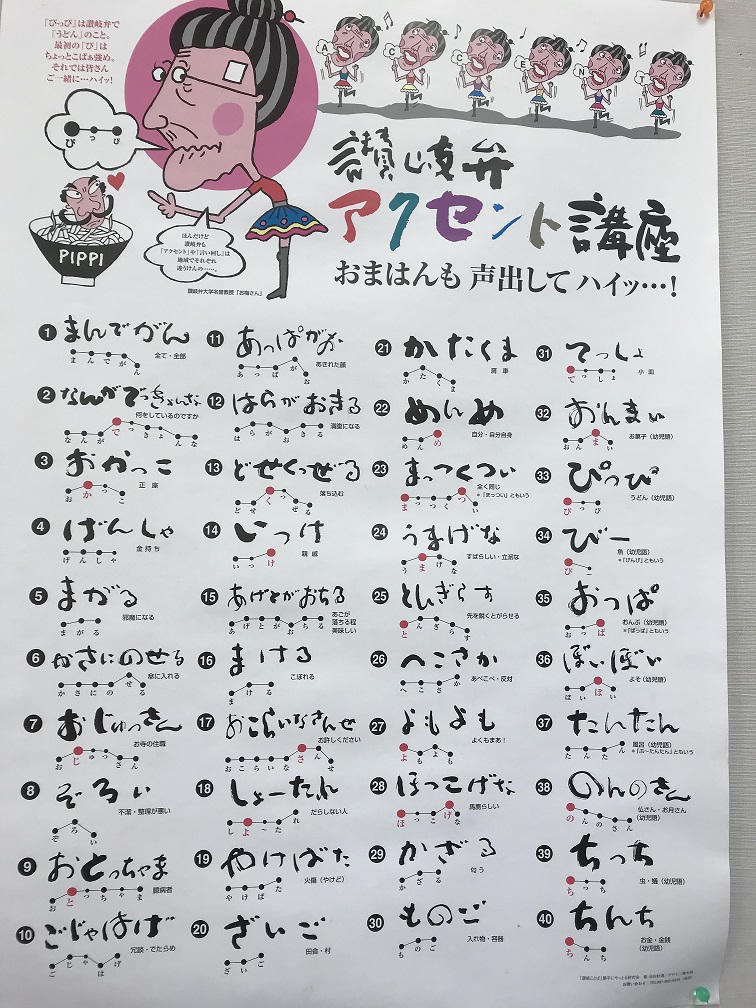 「ぴっぴ」は讃岐弁で
「うどん」のこと。
最初の「ぴ」は
ちょっとこばぁ強め。
それでは皆さん
ご一緒に…ハイッ!
ぴっぴ
PIPPI
ほんだけど
讃岐弁も
「アクセント」や「言い回し」は
地域でそれぞれ
違うけんの……。
讃岐弁大学名誉教授「お梅さん」
A C C E N T
讃岐弁
アクセント講座
おまはんも 声出して ハイッ…!
1 まんでがん
まんでがん
全て・全部
2 なんがでっきょんな
何をしているのですか
なんがでっきょんな
3 おかっこ
おかっこ
正座
4 げんしゃ
げんしゃ
金持ち
5 まがる
まがる
邪魔になる
6 かさにのせる
かさにのせる
傘に入れる
7 おじゅっさん
お寺の住職
おじゅっさん
8 ぞろい
不潔・整理が悪い
ぞろい
9 おとっちゃま
おとっちゃま
臆病者
10 ごじゃはげ
冗談・でたらめ
ごじゃはげ
11 あっぱがお
あっぱがお
あきれた顔
12 はらがおきる
はらがおきる
満腹になる
13 どせくっぜる
どせくっぜる
落ち込む
14 いっけ
いっけ
親戚
15 あげとがおちる
あげとがおちる
あごが
落ちる程
美味しい
16 まける
まける
こぼれる
17 おこらいなさんせ
お許しください
おこらいなさんせ
18 しょーたれ
しよ〜たれ
だらしない人
19 やけばた
やけばた
火傷(やけど)
20 ざいご
ざいご
田舎・村
21 かたくま
かたくま
肩車
22 めんめ
めんめ
自分・自分自身
23 まっつくつい
まっつくつい
全く同じ
*「まっつい」ともいう
24 うまげな
うまげな
すばらしい・立派な
25 とんぎらす
とんぎらす
先を鋭くとがらせる
26 へこさか
へこさか
あべこべ・反対
27 よもよも
よもよも
よくもまあ!
28 ほっこげな
ほっこげな
馬鹿らしい
29 かざる
かざる
匂う
30 ものご
ものご
入れ物・容器
31 てっしょ
てっしょ
小皿
32 おんまい
おんまい
お菓子(幼児語)
33 ぴっぴ
ぴっぴ
うどん(幼児語)
34 びー
びこ
魚(幼児語)
*「びんび」ともいう
35 おっぱ
おっぱ
おんぶ(幼児語)
*「ばっぱ」ともいう
36 ぼいぼい
ぼいぼい
よそ(幼児語)
37 たんたん
たんたん
風呂(幼児語)
*「ぶ〜たんたん」ともいう
38 のんのさん
のんのさん
仏さん・お月さん
(幼児語)
39 ちっち
ちっち
虫・蟻(幼児語)
40 ちんち
ちんち
お金・金銭
(幼児語)